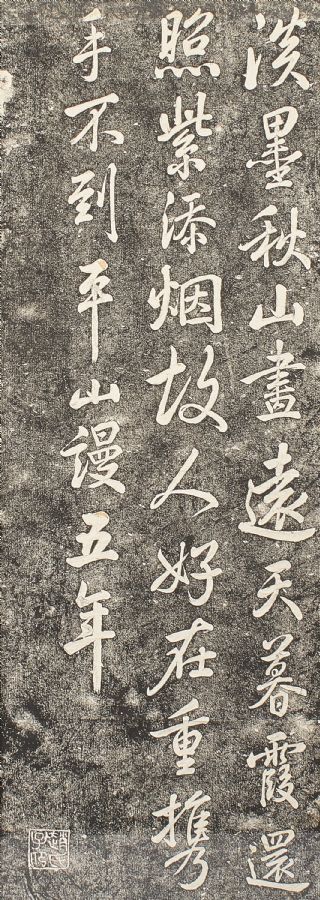 淡墨秋山畫遠天暮霞還
照紫添烟故人好在重携
手不到平山謾五年
趙氏子昂